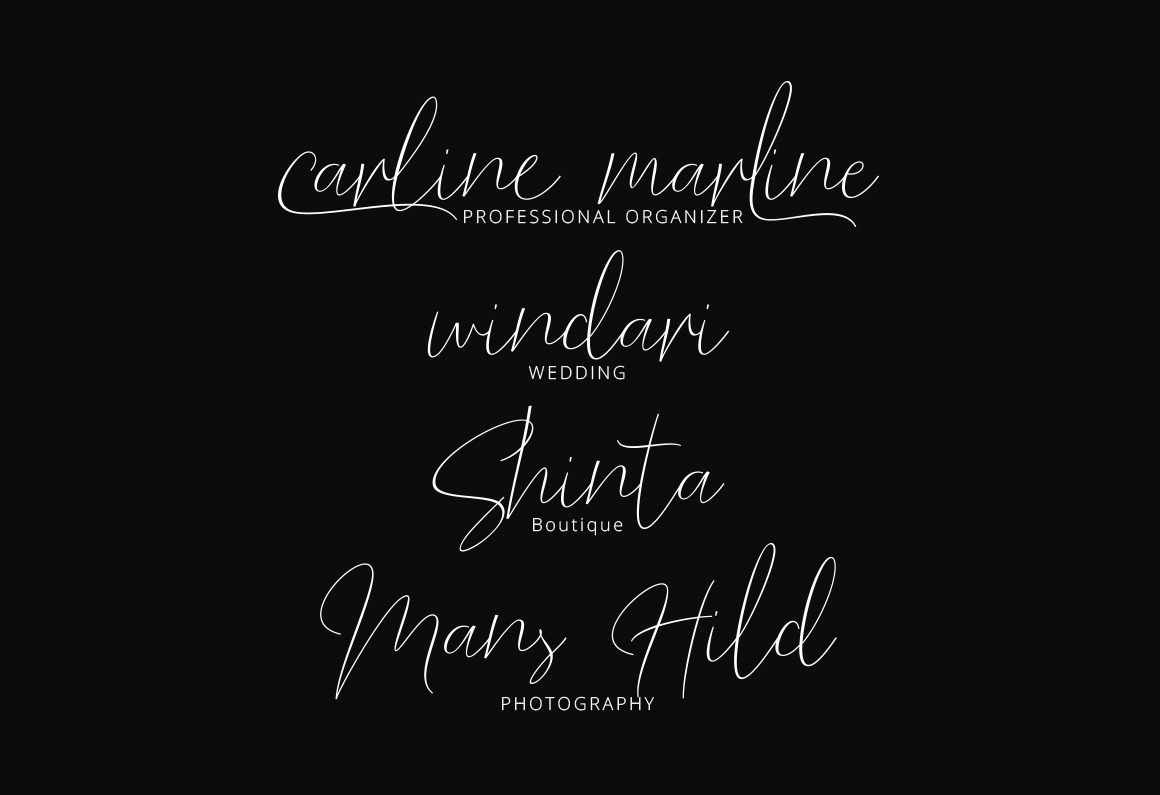 carline marline
PROFESSIONAL ORGANIZER
windari
WEDDING
Shinta
Boutique
Mans Hild
PHOTOGRAPHY